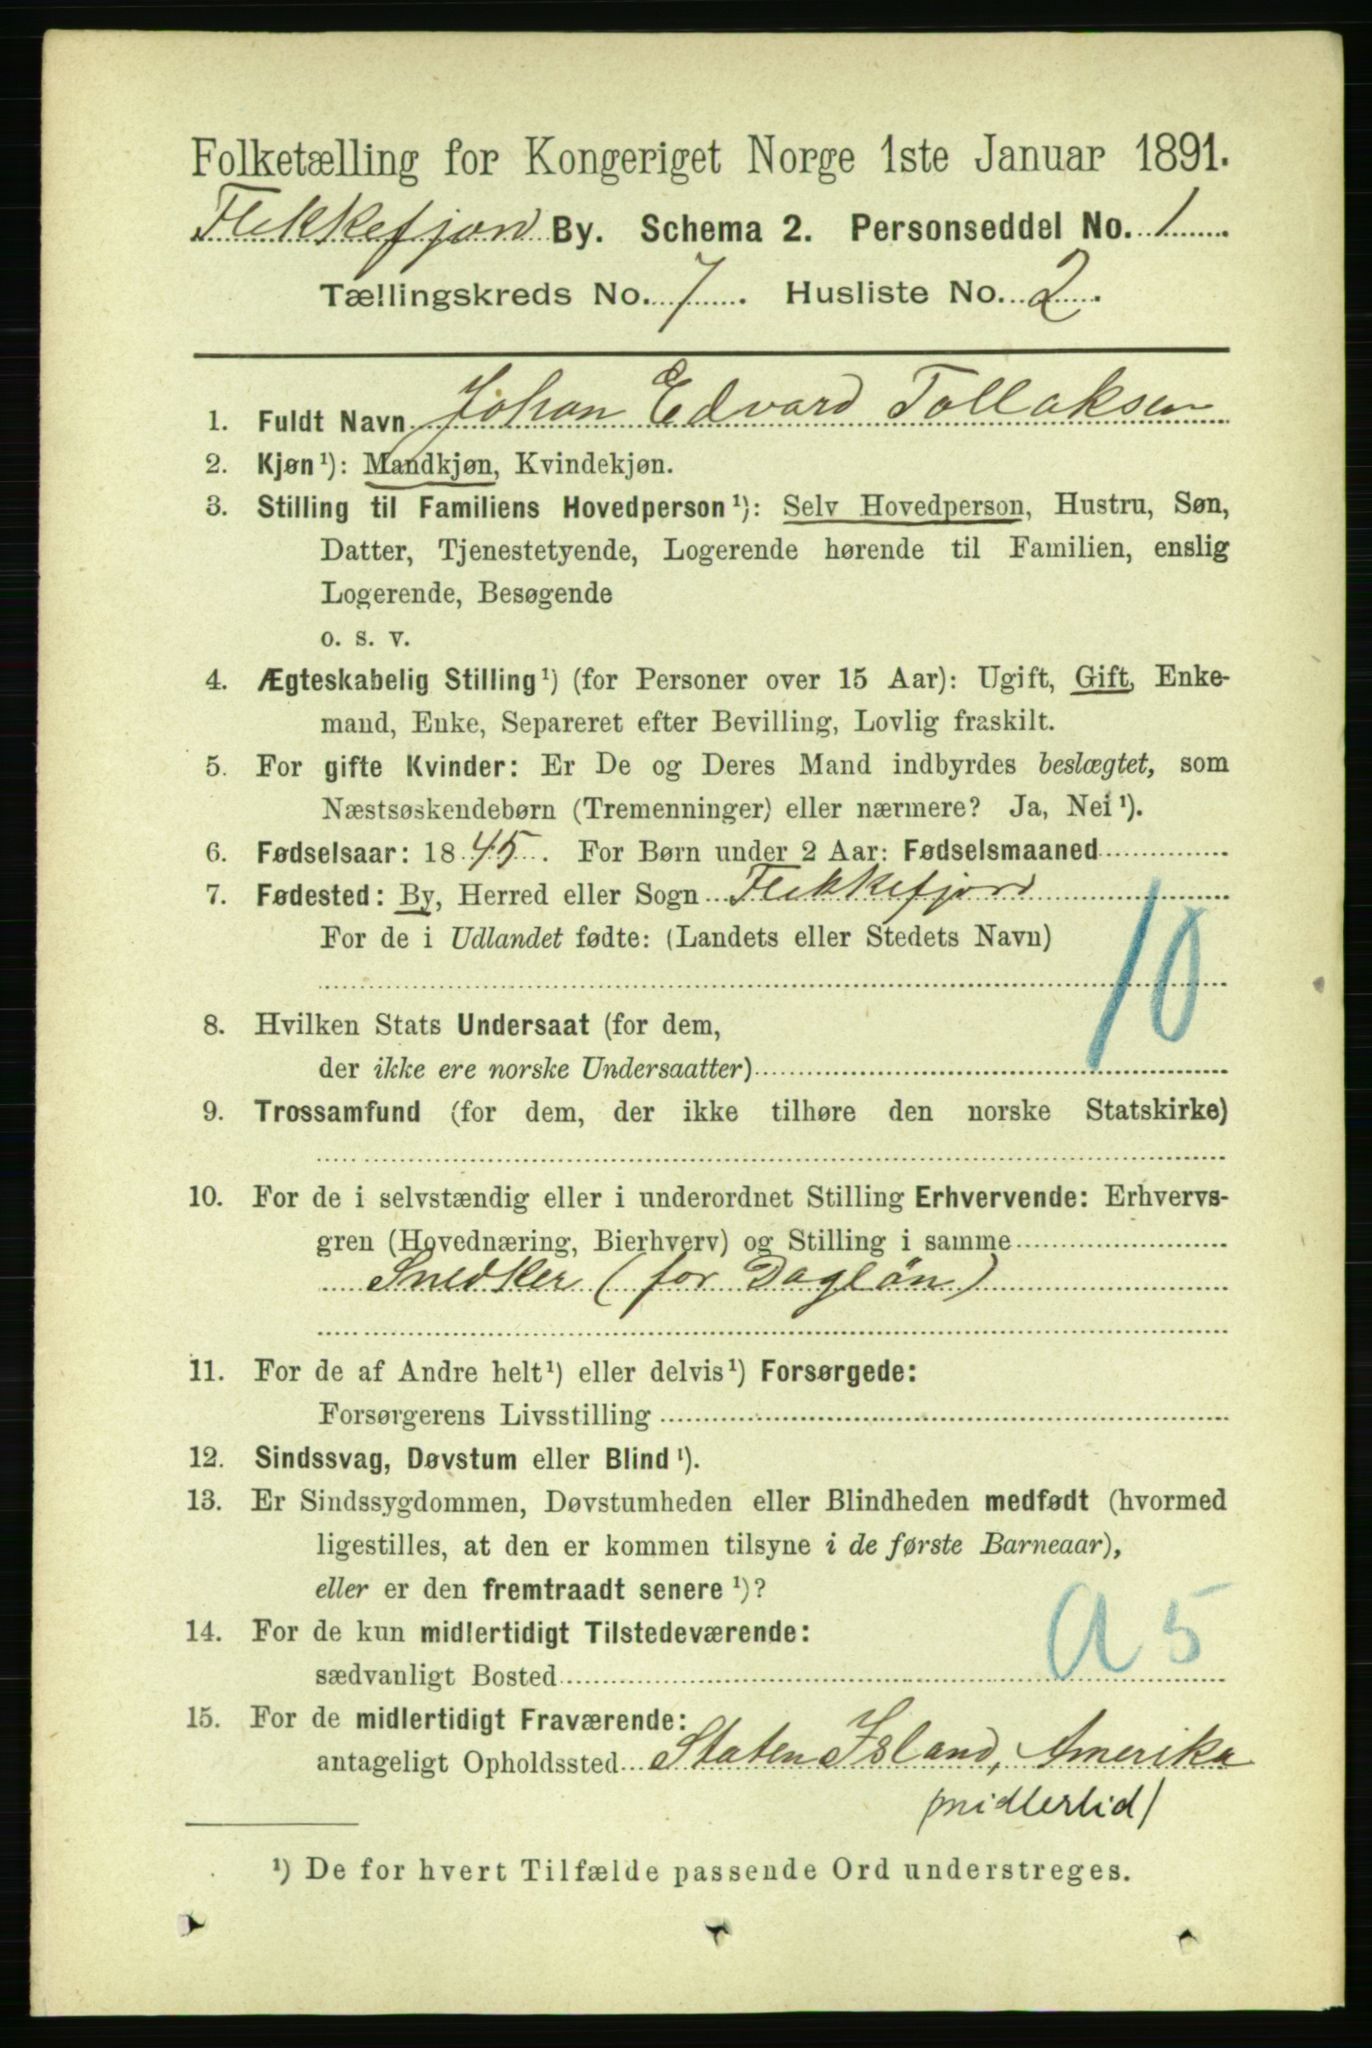 Folketælling for Kongeriget Norge 1ste Januar 1891.
Flekkefjord By. Schema 2. Personseddel No. 1
Tællingskreds No. 7. Husliste No. 2.
1. Fuldt Navn Johan Edvard Tollaksen
2. Kjøn¹): Mandkjøn, Kvindekjøn.
3. Stilling til Familiens Hovedperson¹): Selv Hovedperson, Hustru, Søn,
Datter, Tjenestetyende, Logerende hørende til Familien, enslig
Logerende, Besøgende
o. s. v.
4. Ægteskabelig Stilling¹) (for Personer over 15 Aar): Ugift, Gift, Enke-
mand, Enke, Separeret efter Bevilling, Lovlig fraskilt.
5. For gifte Kvinder: Er De og Deres Mand indbyrdes beslægtet, som
Næstsøskendebørn (Tremenninger) eller nærmere? Ja, Nei¹).
6. Fødselsaar: 1845. For Børn under 2 Aar: Fødselsmaaned
7. Fødested: By, Herred eller Sogn Flekkefjord
For de i Udlandet fødte: (Landets eller Stedets Navn)
10
8. Hvilken Stats Undersaat (for dem,
der ikke ere norske Undersaatter)
9. Trossamfund (for dem, der ikke tilhøre den norske Statskirke)
10. For de i selvstændig eller i underordnet Stilling Erhvervende: Erhvervs-
gren (Hovednæring, Bierhverv) og Stilling i samme
Snedker (for Dagløn)
11. For de af Andre helt¹) eller delvis¹) Forsørgede:
Forsørgerens Livsstilling
12. Sindssvag, Døvstum eller Blind¹).
13. Er Sindssygdommen, Døvstumheden eller Blindheden medfødt (hvormed
ligestilles, at den er kommen tilsyne i de første Barneaar),
eller er den fremtraadt senere¹)?
14. For de kun midlertidigt Tilstedeværende:
sædvanligt Bosted
a 5
15. For de midlertidigt Fraværende:
antageligt Opholdssted Staten Island, Amerika
/midlertid/
¹) De for hvert Tilfælde passende Ord understreges.